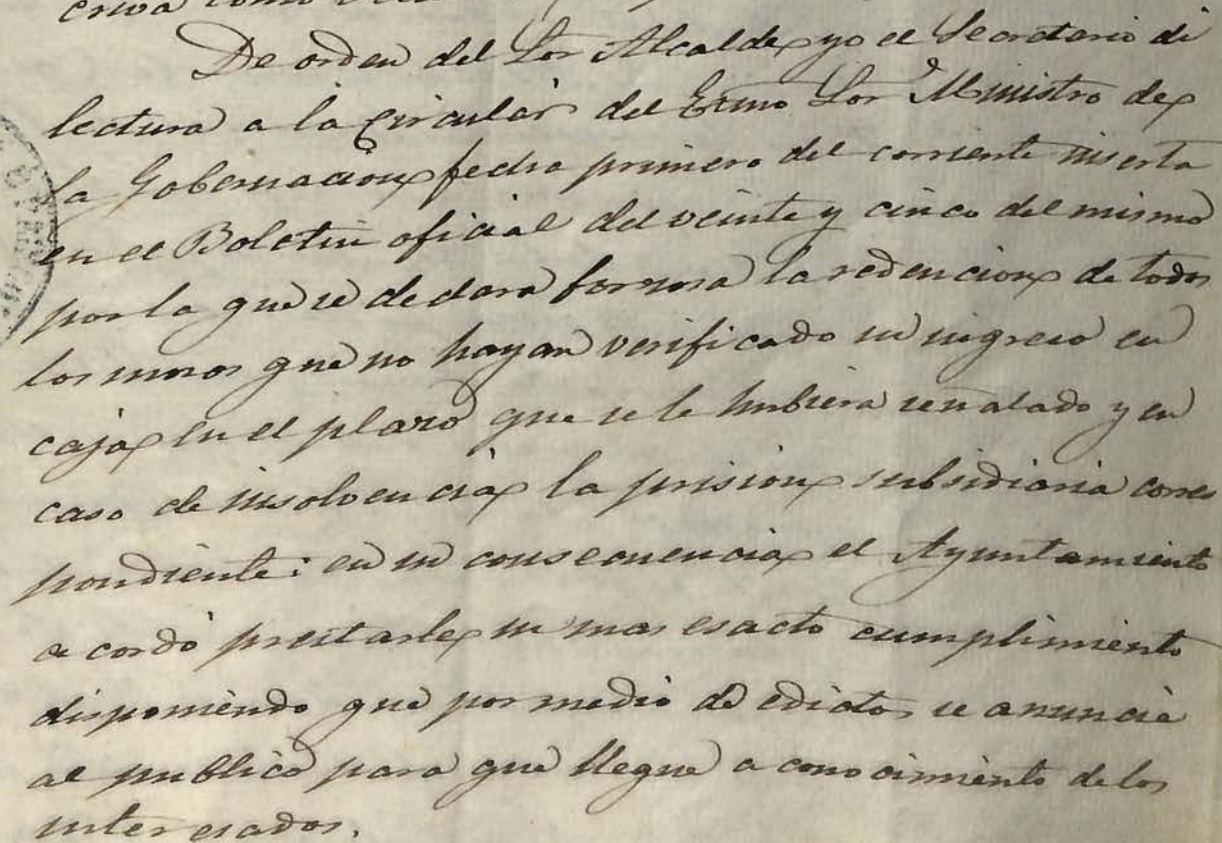 como
De orden del Sor Alcalde yo el Secretario di
lectura a la circular del Exmo Sor Ministro de
la Gobernacion fecha primero del corriente inserta
en el Boletin oficial del veinte y cinco del mismo
por la que se declara forzosa la redencion de todos
los mozos que no hayan verificado su ingreso en
caja en el plazo que se le hubiera señalado y en
caso de insolvencia la prision subsidiaria corres
pondiente: en su consecuencia el Ayuntamiento
acordó prestarle su mas esacto cumplimiento
disponiendo que por medio de edictos se anuncie
al publico para que llegue a conocimiento de los
interesados.